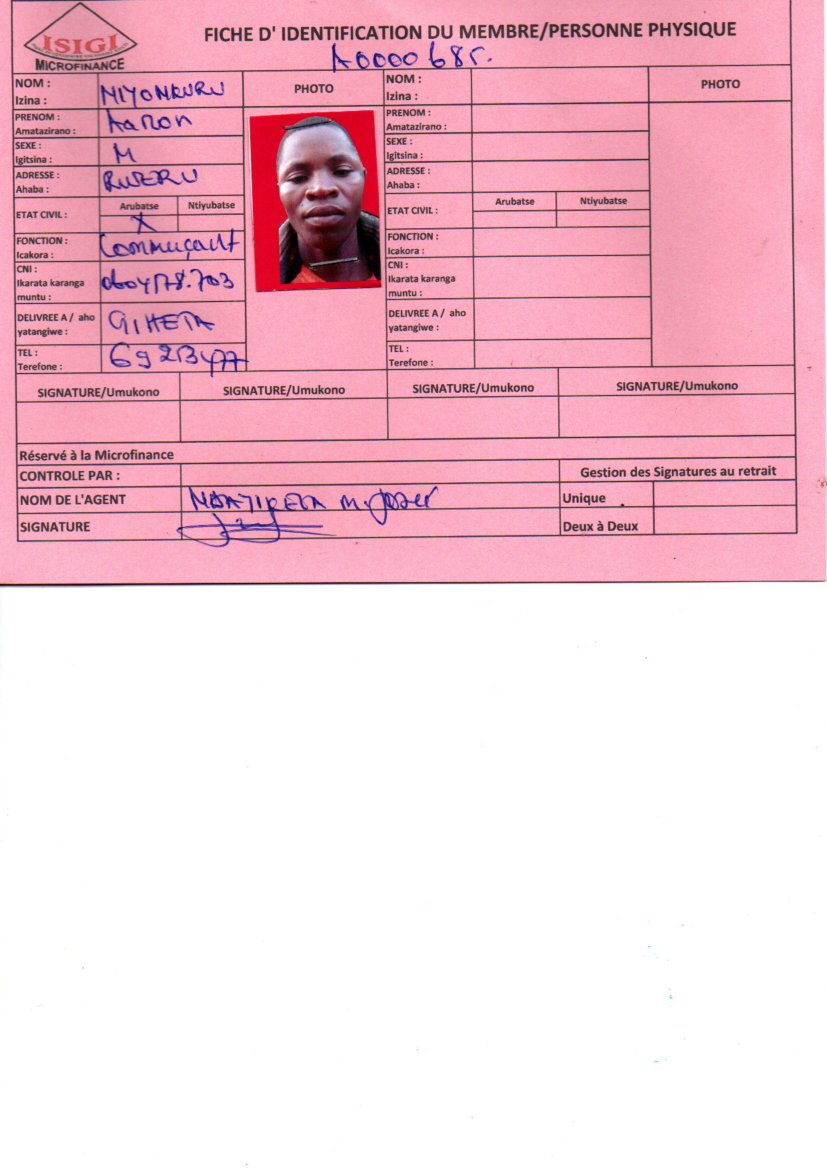 ISIGI
MICROFINANCE
FICHE D' IDENTIFICATION DU MEMBRE/PERSONNE PHYSIQUE
A0000685.
NOM :
Izina :
NIYONKURU
PHOTO
NOM :
Izina :
PHOTO
PRENOM :
Amatazirano :
Aaron
PRENOM :
Amatazirano :
SEXE :
Igitsina :
M
SEXE :
Igitsina :
ADRESSE :
Ahaba :
RWERU
ADRESSE :
Ahaba :
ETAT CIVIL :
Arubatse Ntiyubatse
X
ETAT CIVIL :
Arubatse Ntiyubatse
FONCTION :
Icakora :
Commerçant
FONCTION :
Icakora :
CNI :
Ikarata karanga
muntu :
CNI :
Ikarata karanga
muntu :
DELIVREE A / aho
yatangiwe :
GIHETA
DELIVREE A / aho
yatangiwe :
TEL :
Terefone :
69213477
TEL :
Terefone :
SIGNATURE/Umukono SIGNATURE/Umukono SIGNATURE/Umukono SIGNATURE/Umukono
Réservé à la Microfinance
CONTROLE PAR :
Gestion des Signatures au retrait
NOM DE L'AGENT
Unique
SIGNATURE
Deux à Deux